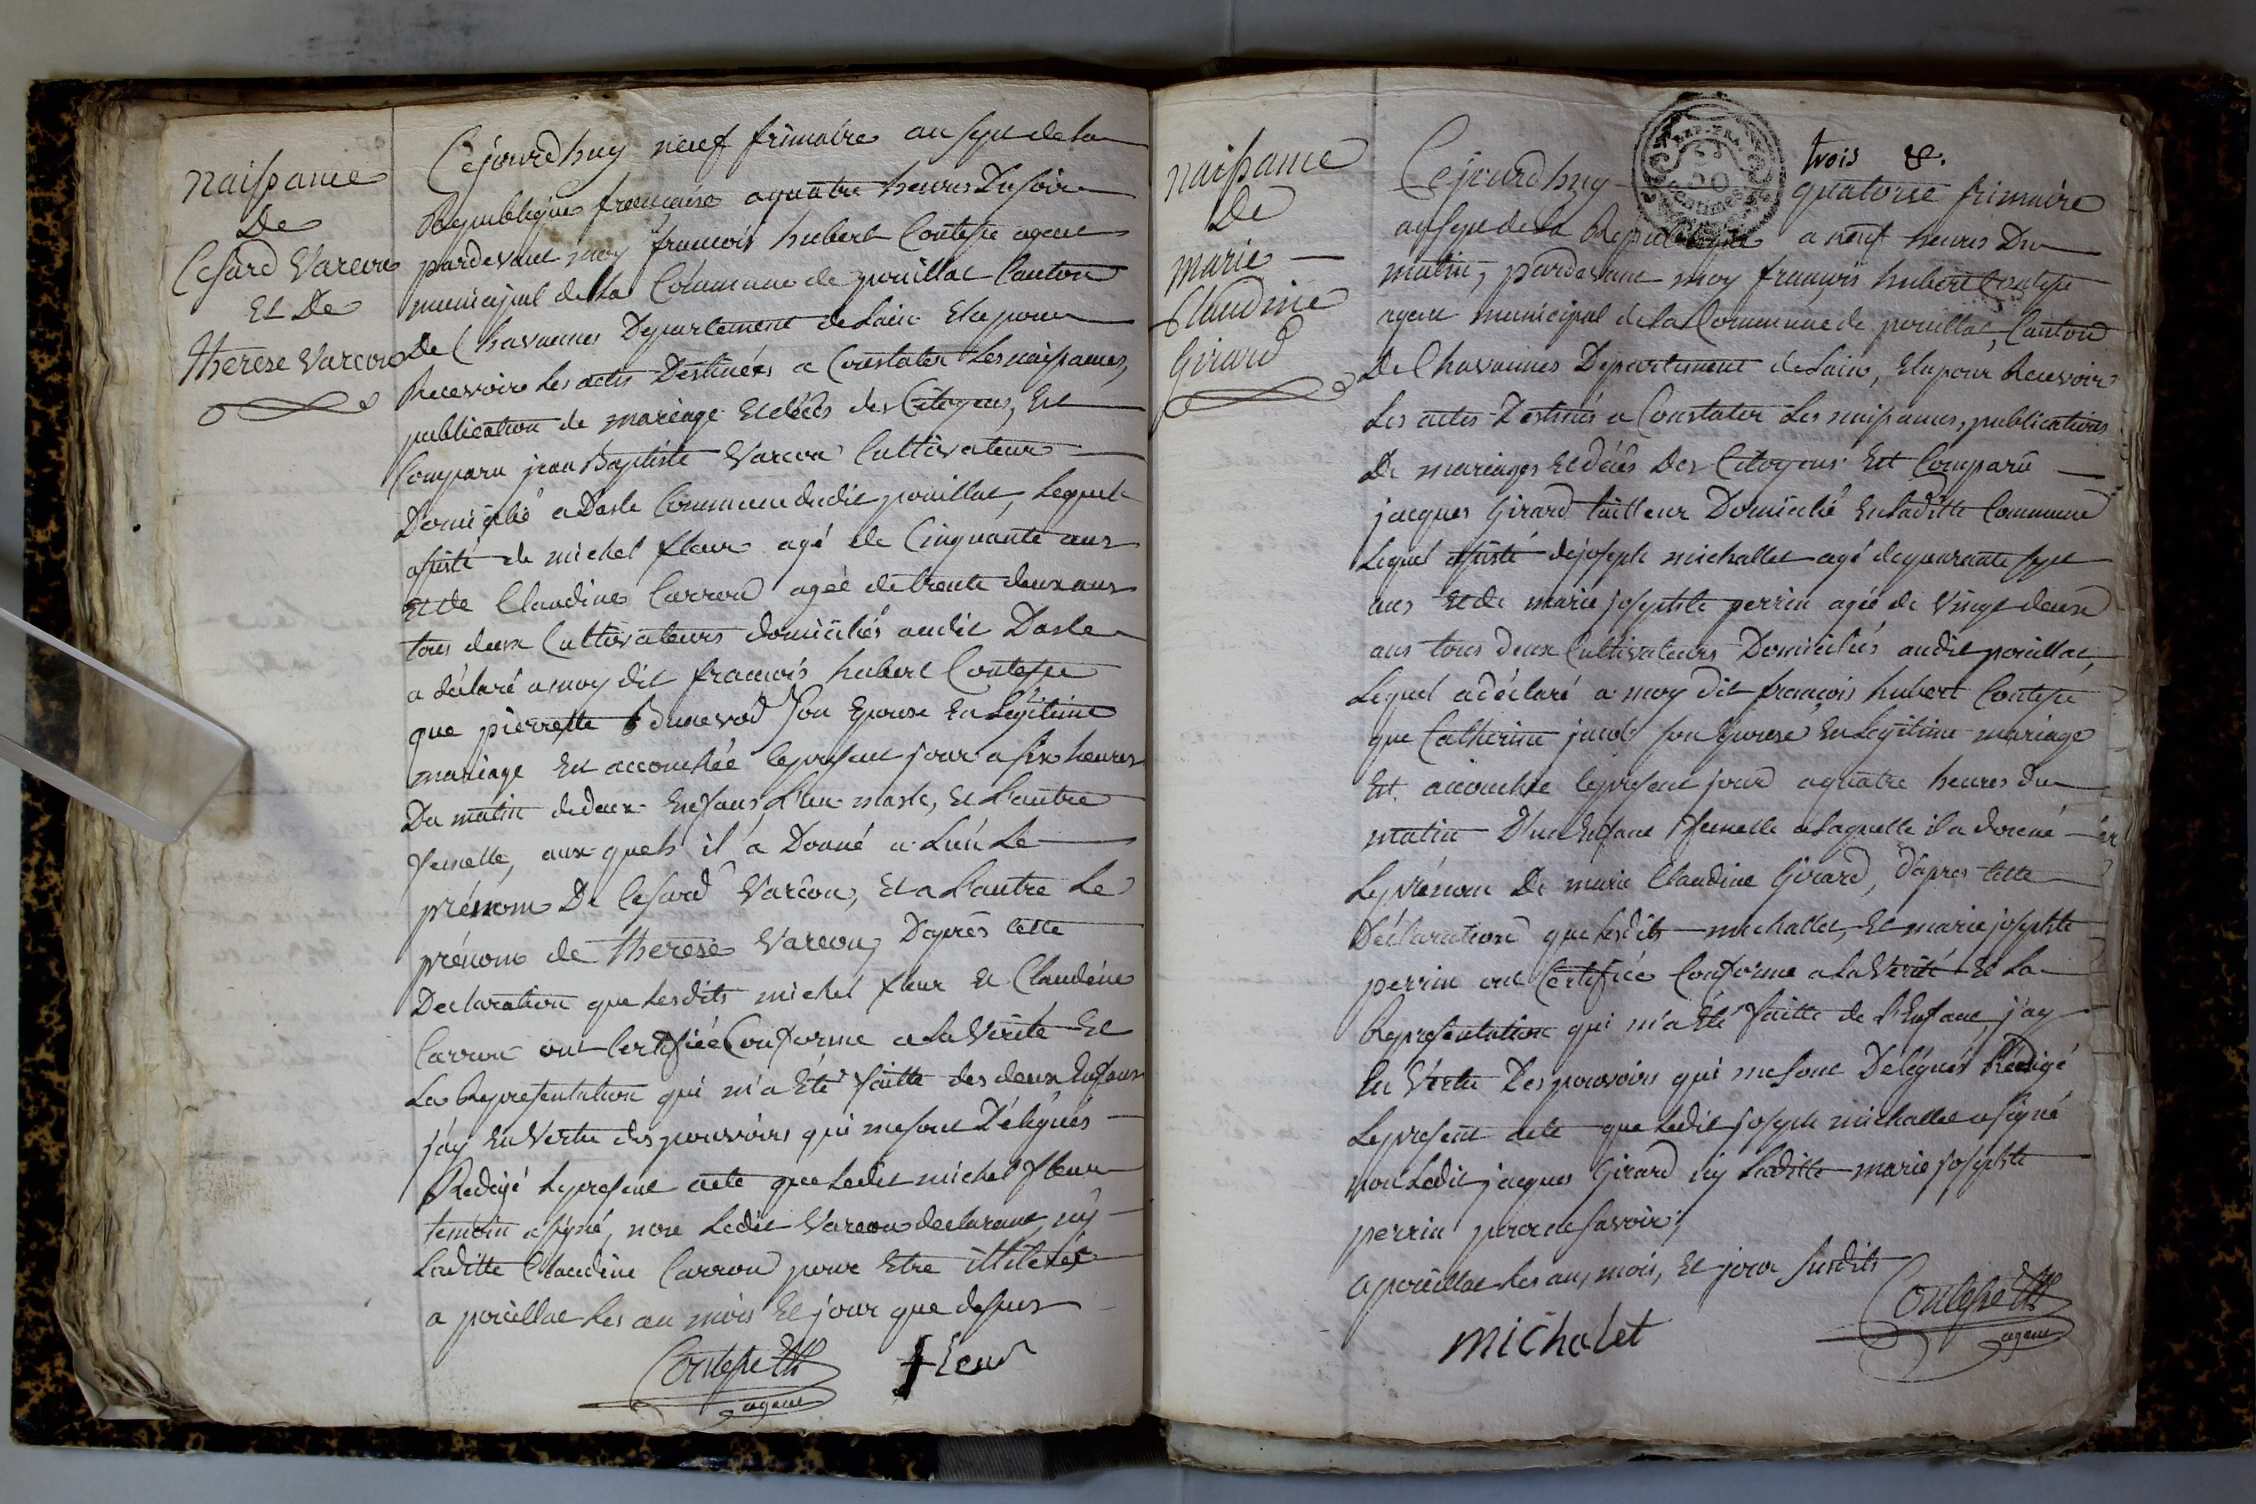 naissance
De
Cesard Vareon
Et De
therese Vareon
Cejourdhuy neuf frimaire an sept de la
Republique francaise a quatre heures Du soir
pardevant moy francois hubert Contesse agent
municipal de la Commune de pouillat Canton
De Chavannes Departement de Lain Elu pour
Recevoire Les actes Destinées a Constater Les naissances,
publication de mariage Et décès des Citoyens, Est
Comparu jean Baptiste Vareon Cultivateur
Domicilié a Dasle Commune dudit pouillat, Lequel
assisté de michel fleur agé de Cinquante ans
Et de Claudine Carron agée de trente deux ans
tous deux Cultivateurs domiciliés audit Dasle
a déclaré a moy dit francois hubert Contesse
que pierrette Son Epouse En Légitime
mariage Est accouchée le present jour a six heures
Du matin de deux Enfans, L'un masle, Et L'autre
femelle, aux quels il a Donné a L'un Le
prénom De Cesard Vareon, Et a L'autre Le
prénom de therese Vareon, D'après cette
Declaration que Lesdits michel fleur Et Claudine
Carron ont Certifiée Conforme a La Vérité Et
La Representation qui m'a Eté faitte des deux Enfans
j'ay En Vertu des pouvoirs qui me sont Délégués
Redigé Le present acte que Ledit michel fleur
temoin a signé, non Ledit Vareon declarant, ny
Laditte Claudine Carron pour Etre
a pouillat Les an mois Et jour que dessus
Contesse
agent
fleur
naissance
De
marie
Claudine
Girard
trois &.
REP. FRA.
50
centimes
Cejourdhuy quatorse frimaire
an sept de la Republique a neuf heures Du
matin, pardevant moy françois hubert Contesse
agent municipal de la Commune de pouillat, Canton
De Chavannes Departement de Lain, Elu pour Recevoir
Les actes Destinés a Constater Les naissances, publications
De mariages Et décès Des Citoyens Est Comparû
jacques Girard tailleur Domicilié En Laditte Commune
Lequel assisté de joseph michallet agé de quarante sept
ans Et de marie josephte perrin agée de Vingt deux
ans tous deux Cultivateurs Domiciliés audit pouillat,
Lequel a déclaré a moy dit francois hubert Contesse
que Catherine jacob son Epouse En Legitime mariage
Est accouchée le present jour a quatre heures du
matin D'un Enfant femelle a Laquelle il a donné
Le prénom De marie Claudine Girard, D'apres cette
Déclaration que Lesdits michallet, Et marie josephte
perrin ont Certifiée Conforme a La Verité Et La
Representation qui m'a Eté faitte de L'Enfant, j'ay
En Vertu Des pouvoirs qui me sont Délégués Redigé
Le present acte que Ledit joseph michallet a signé
non Ledit jacques Girard ny Laditte marie josephte
perrin pour ne savoir,
a pouillat Les an, mois, Et jour susdits
Contesse
agent
michalet